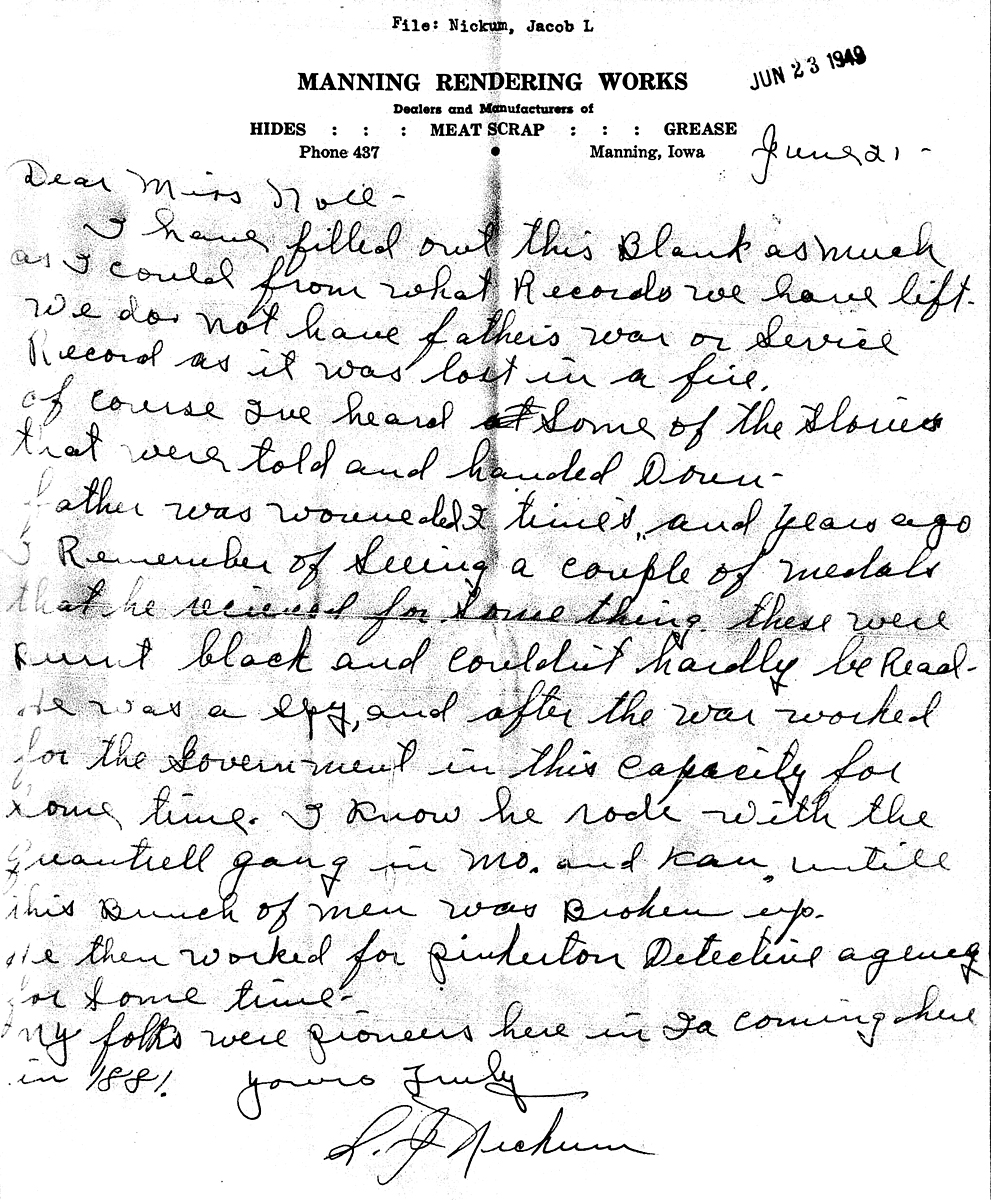 File: Nickum, Jacob L
JUN 23 1949
MANNING RENDERING WORKS
Dealers and Manufacturers of
HIDES : : : MEAT SCRAP : : : GREASE
Phone 437 • Manning, Iowa
June 21 -
Dear Miss Noll -
I have filled out this Blank as much
as I could from what Records we have lift.
We do not have fathers war or Service
Record as it was lost in a fire.
of course Ive heard some of the stories
that were told and handed Down -
father was wounded 2 times, and years ago
I Remember of Seeing a couple of medals
that he recieved for some thing. these were
Burnt black and couldn't hardly be Read -
He was a spy, and after the war worked
for the Government in this capacity for
some time. I know he rode with the
Quantrell gang in Mo. and Kan, untill
this Bunch of men was Broken up.
He then worked for pinkerton Detective agency
for some time -
my folks were pioneers here in Ia coming here
in 1881. yours Truly
Nickum